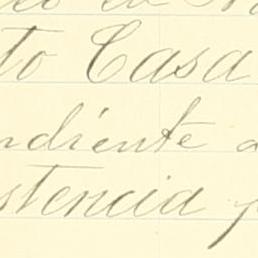 to Casa
ndiente a
stencia p